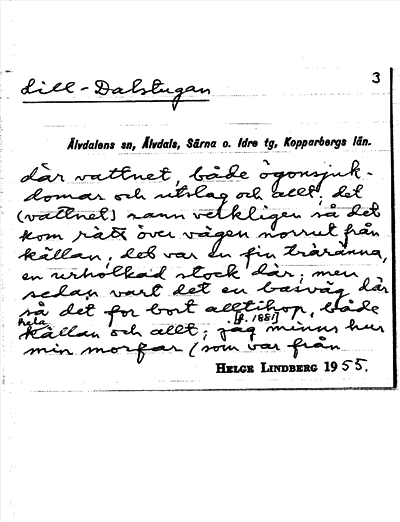 3
Lill-Dalstugan
Älvdalens sn, Älvdals, Särna o. Idre tg, Kopparbergs län.
där vattnet, både ögonsjuk-
domar och utslag och allt, det
(vattnet) rann verkligen så det
kom rätt över vägen norrut från
källan, det var en fin träränna,
en urholkad stock där; men
sedan vart det en basväg där
så det for bort alltihop, både
hela [f. 1881]
källan och allt; jag minns hur
min morfar (som var från
HELGE LINDBERG 1955.